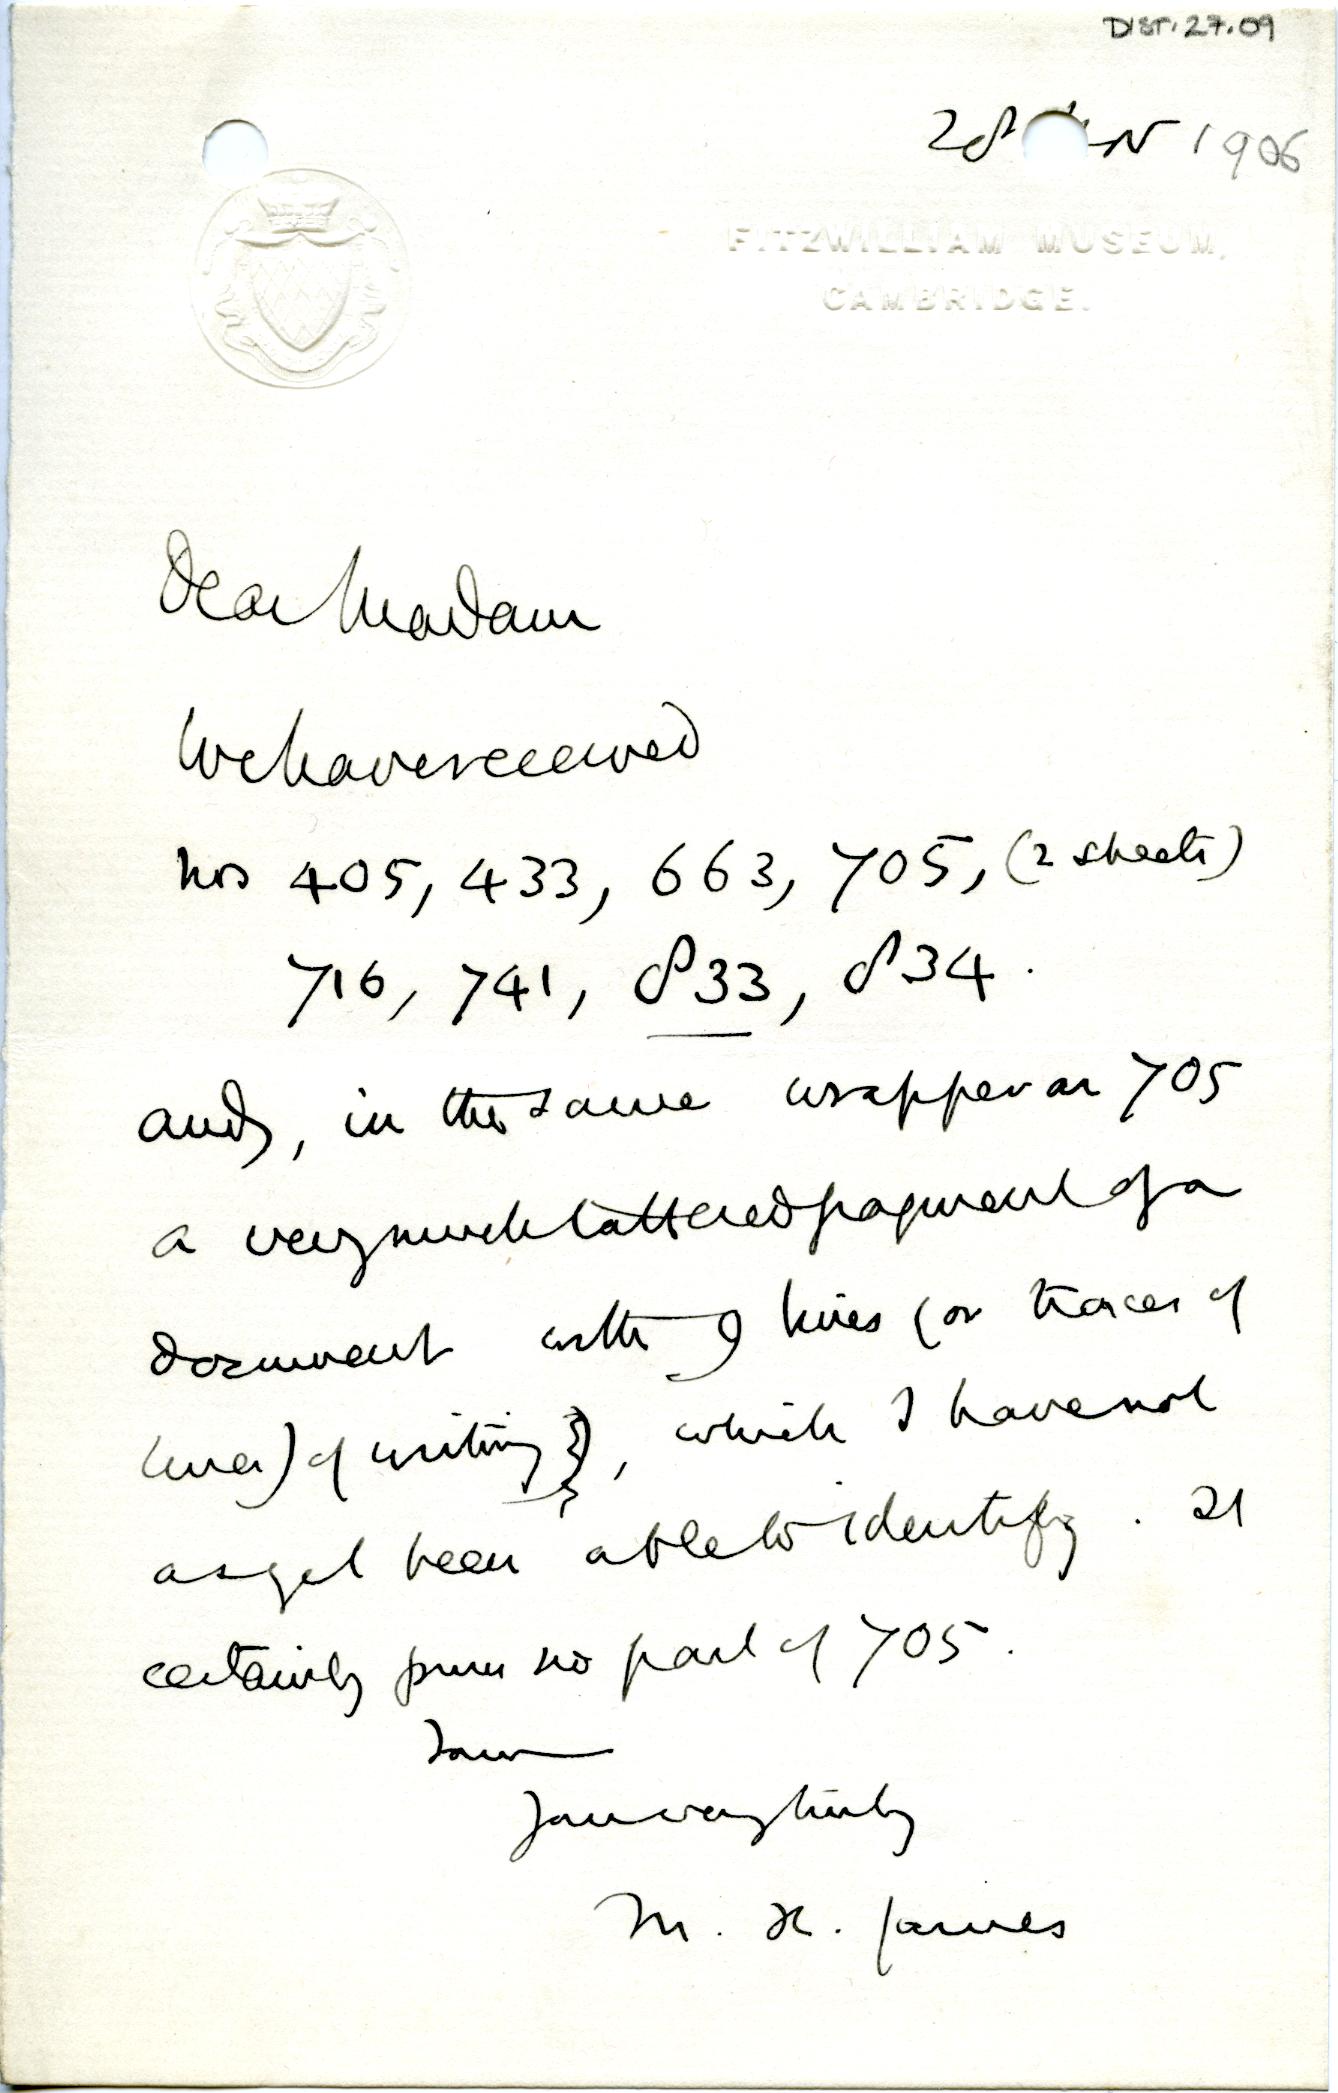 DIST.27.09
28 1906
FITZWILLIAM MUSEUM,
CAMBRIDGE.
Dear Madam
We have received
nos 405, 433, 663, 705, (2 sheets)
716, 741, 833, 834.
and, in the same wrapper as 705
a very much tattered fragment of a
document with 9 lines (or traces of
lines) of writing, which I have not
as yet been able to identify. It
certainly forms no part of 705.
I am
Yours very truly
M. R. James